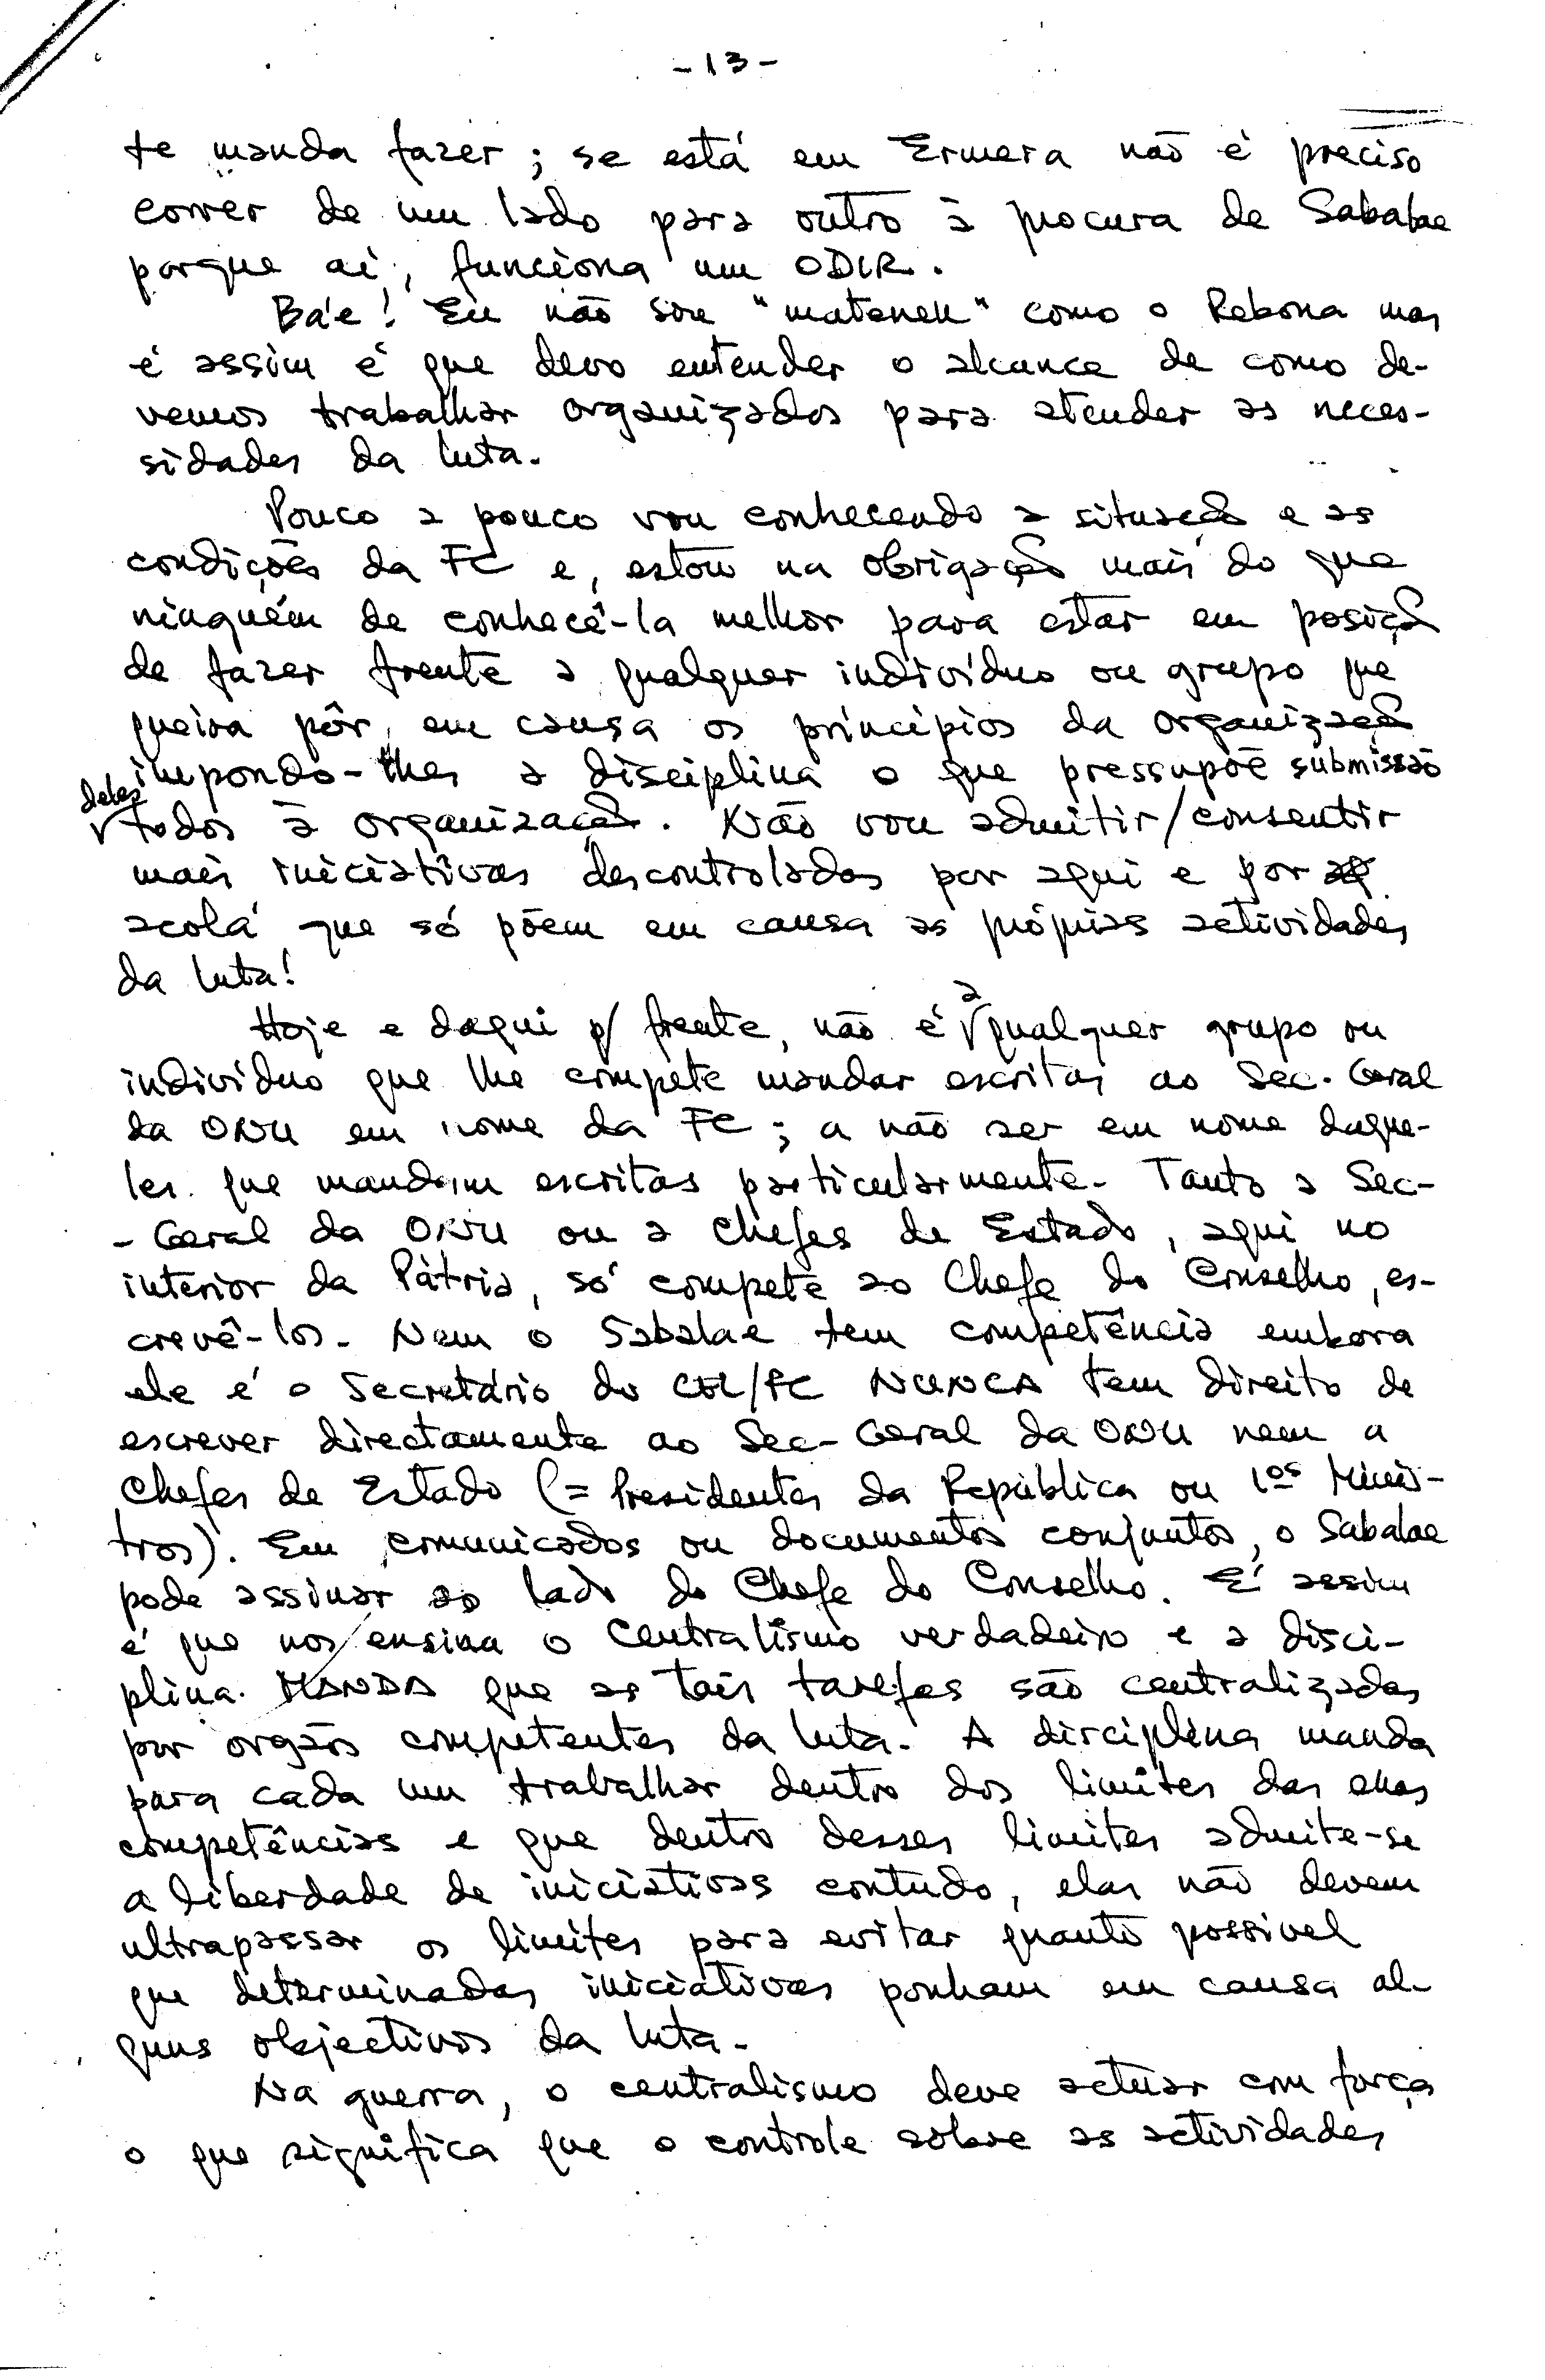 -13-
te manda fazer; se está em Ermera não é preciso
correr de um lado para outro à procura de Sabalae
porque aí, funciona um ODIR.
Bá'e! Eu não sou "matenek" como o Rebona mas
é assim é que devo entender o alcance de como de-
vemos trabalhar organizados para atender as neces-
sidades da luta.
Pouco a pouco vou conhecendo a situação e as
condições da FC e, estou na obrigação mais do que
ninguém de conhecê-la melhor para estar em posição
de fazer frente a qualquer indivíduo ou grupo que
queira pôr em causa os princípios da organização
impondo-lhes a disciplina o que pressupõe submissão
deles
todos à organização. Não vou admitir/consentir
mais iniciativas descontroladas por aqui e por
acolá que só põem em causa as próprias actividades
da luta!
Hoje e daqui p/ frente, não é a qualquer grupo ou
indivíduo que lhe compete mandar escritas ao Sec. Geral
da ONU em nome da FC; a não ser em nome daque-
les que mandam escritas particularmente. Tanto a Sec-
-Geral da ONU ou a Chefes de Estado, aqui no
interior da Pátria, só compete ao Chefe do Conselho, es-
crevê-los. Nem o Sabalae tem competência embora
ele é o Secretário do CEL/FC NUNCA tem direito de
escrever directamente ao Sec-Geral da ONU nem a
Chefes de Estado (= Presidentes da República ou 1ºs Minis-
tros). Em comunicados ou documentos conjuntos, o Sabalae
pode assinar ao lado do Chefe do Conselho. É assim
é que nos/ensina o centralismo verdadeiro e a disci-
plina. MANDA que as tais tarefas são centralizadas
por orgãos competentes da luta. A disciplina manda
para cada um trabalhar dentro dos limites das suas
competências e que dentro desses limites admite-se
a liberdade de iniciativas contudo, elas não devem
ultrapassar os limites para evitar quanto possível
que determinadas iniciativas ponham em causa al-
guns objectivos da luta.
Na guerra, o centralismo deve actuar com força
o que significa que o controle sobre as actividades